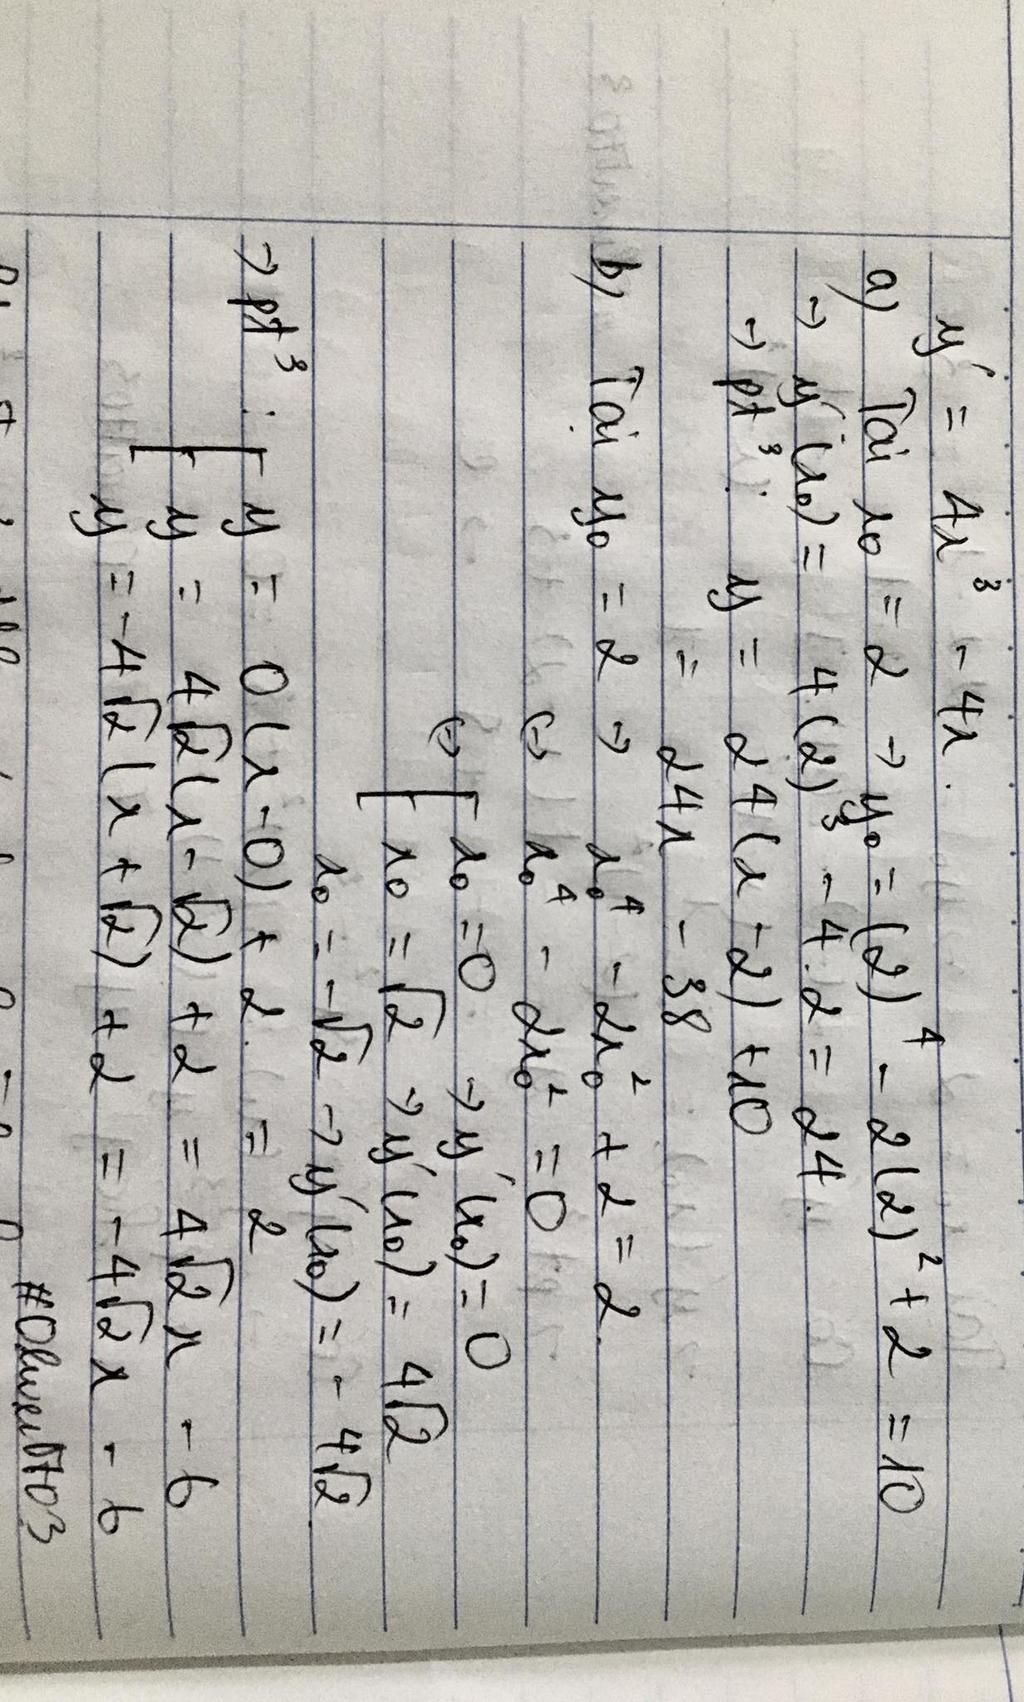 y' = 4x³ - 4x.
a) Tại x₀ = 2 → y₀ = (2)⁴ - 2(2)² + 2 = 10
→ y'(x₀) = 4(2)³ - 4.2 = 24.
→ pt³: y = 24(x - 2) + 10
= 24x - 38
b) Tại y₀ = 2 → x₀⁴ - 2x₀² + 2 = 2.
(=) x₀⁴ - 2x₀² = 0
(=) [ x₀ = 0 → y'(x₀) = 0
x₀ = √2 → y'(x₀) = 4√2
x₀ = -√2 → y'(x₀) = - 4√2.
→ pt³: [ y = 0(x - 0) + 2. = 2
y = 4√2(x - √2) + 2 = 4√2x - 6
y = -4√2(x + √2) + 2 = -4√2x - 6